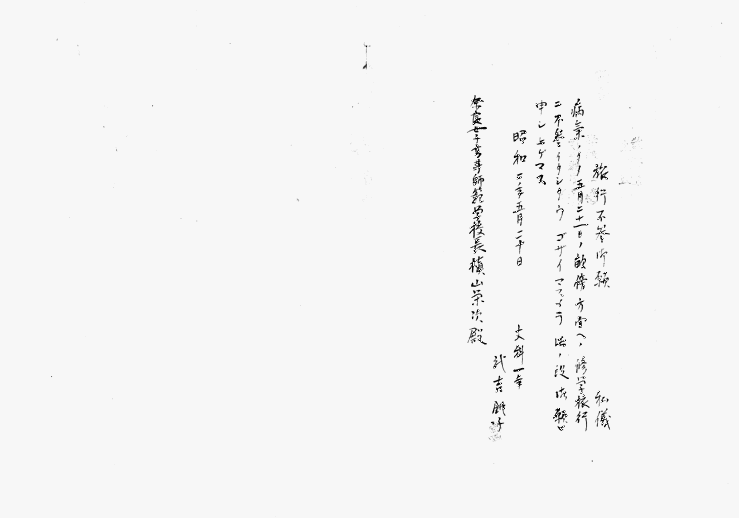 旅行不参御願
私儀
病気ノタメ五月二十一日ノ畝傍方面ヘノ修学旅行
ニ不参イタシタウゴザイマスカラ此ノ段御願ヒ
申シ上ゲマス
昭和二年五月二十日
文科一年
武吉
奈良女子高等師範学校長槇山栄次殿